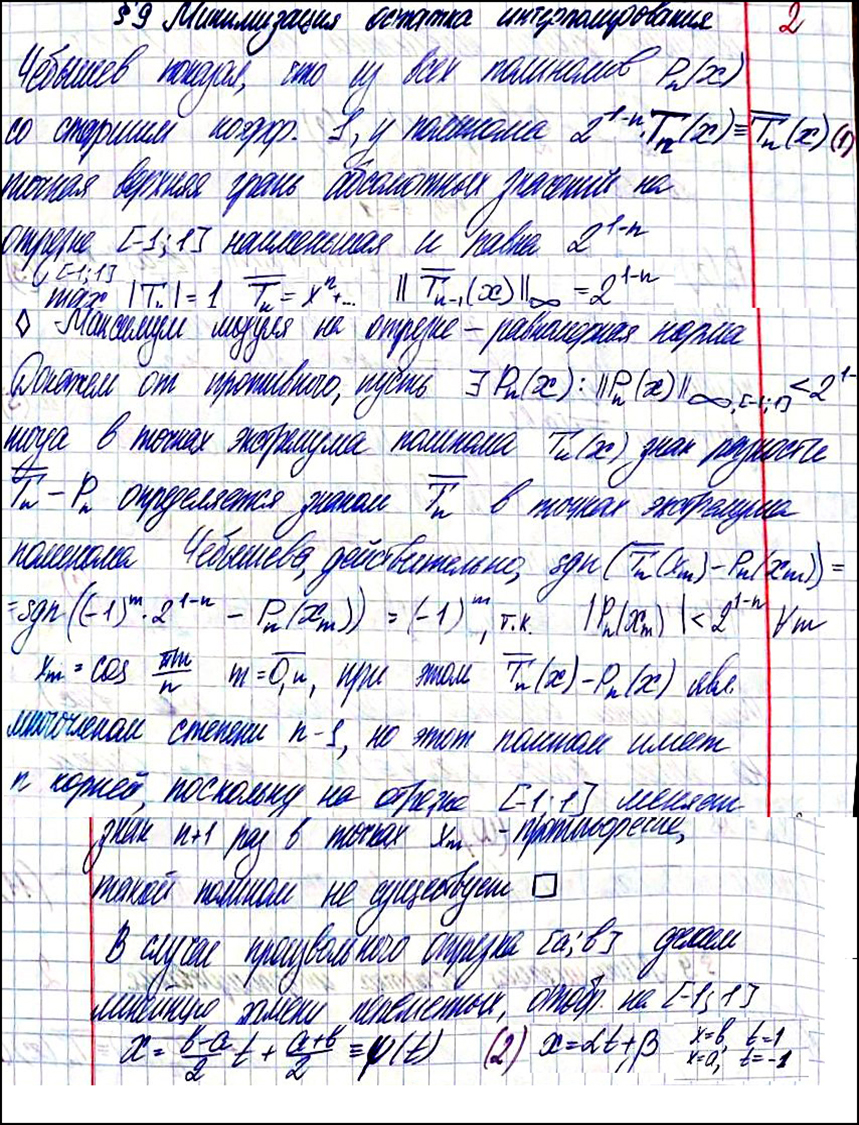 §9 Минимизация остатка интерполирования 2
Чебышев показал, что из всех полиномов Pₙ(x)
со старшим коэфф. 1, у полинома 2¹⁻ⁿ·Tₙ(x)≡T̅ₙ(x) (1)
точная верхняя грань абсолютных значений на
отрезке [-1;1] наименьшая и равна 2¹⁻ⁿ
[-1;1]
max |Tₙ|=1 T̅ₙ=xⁿ+... ‖T̅ₙ₋₁(x)‖∞ = 2¹⁻ⁿ
◊ Максимум модуля на отрезке – равномерная норма
Докажем от противного, пусть ∃ Pₙ(x): ‖Pₙ(x)‖∞,[-1;1] < 2¹⁻
тогда в точках экстремума полинома Tₙ(x) знак разности
T̅ₙ – Pₙ определяется знаком T̅ₙ в точках экстремума
полинома Чебышева, действительно, sgn(T̅ₙ(xₘ)–Pₙ(xₘ))=
=sgn((-1)ᵐ·2¹⁻ⁿ – Pₙ(xₘ)) = (-1)ᵐ, т.к. |Pₙ(xₘ)|<2¹⁻ⁿ ∀m
xₘ = cos πm/n m=0,n, при этом T̅ₙ(x)–Pₙ(x) явл.
многочленом степени n-1, но этот полином имеет
n корней, поскольку на отрезке [-1;1] меняет
знак n+1 раз в точках xₘ - противоречие,
такой полином не существует □
В случае произвольного отрезка [a;b] делаем
линейную замену переменных, отобр. на [-1;1]
x = (b-a)/2 t + (a+b)/2 ≡ φ(t) (2) x=αt+β x=b, t=1
x=a, t=-1